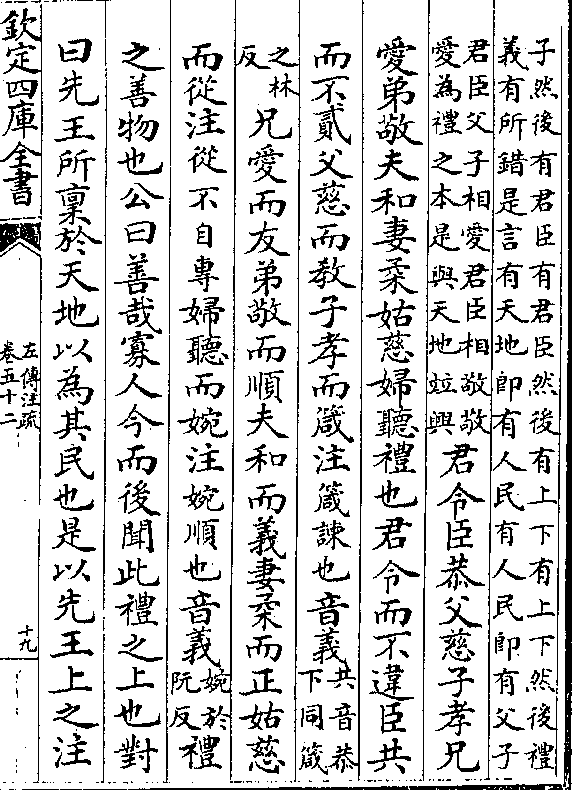 子然後有君臣有君臣然後有上下有上下然後禮
義有所錯是言有天地即有人民有人民即有父子
君臣父子相愛君臣相敬敬
愛為禮之本是與天地竝興
君令臣恭父慈子孝兄
愛弟敬夫和妻柔姑慈婦聽禮也君令而不違臣共
而不貳父慈而教子孝而箴注箴諫也音義
共音恭
下同箴
之林
反
兄愛而友弟敬而順夫和而義妻柔而正姑慈
而從注從不自專婦聽而婉注婉順也音義
婉於
阮反
禮
之善物也公曰善哉寡人今而後聞此禮之上也對
曰先王所稟於天地以為其民也是以先王上之注
欽定四庫全書
左傳注疏
卷五十二
十九